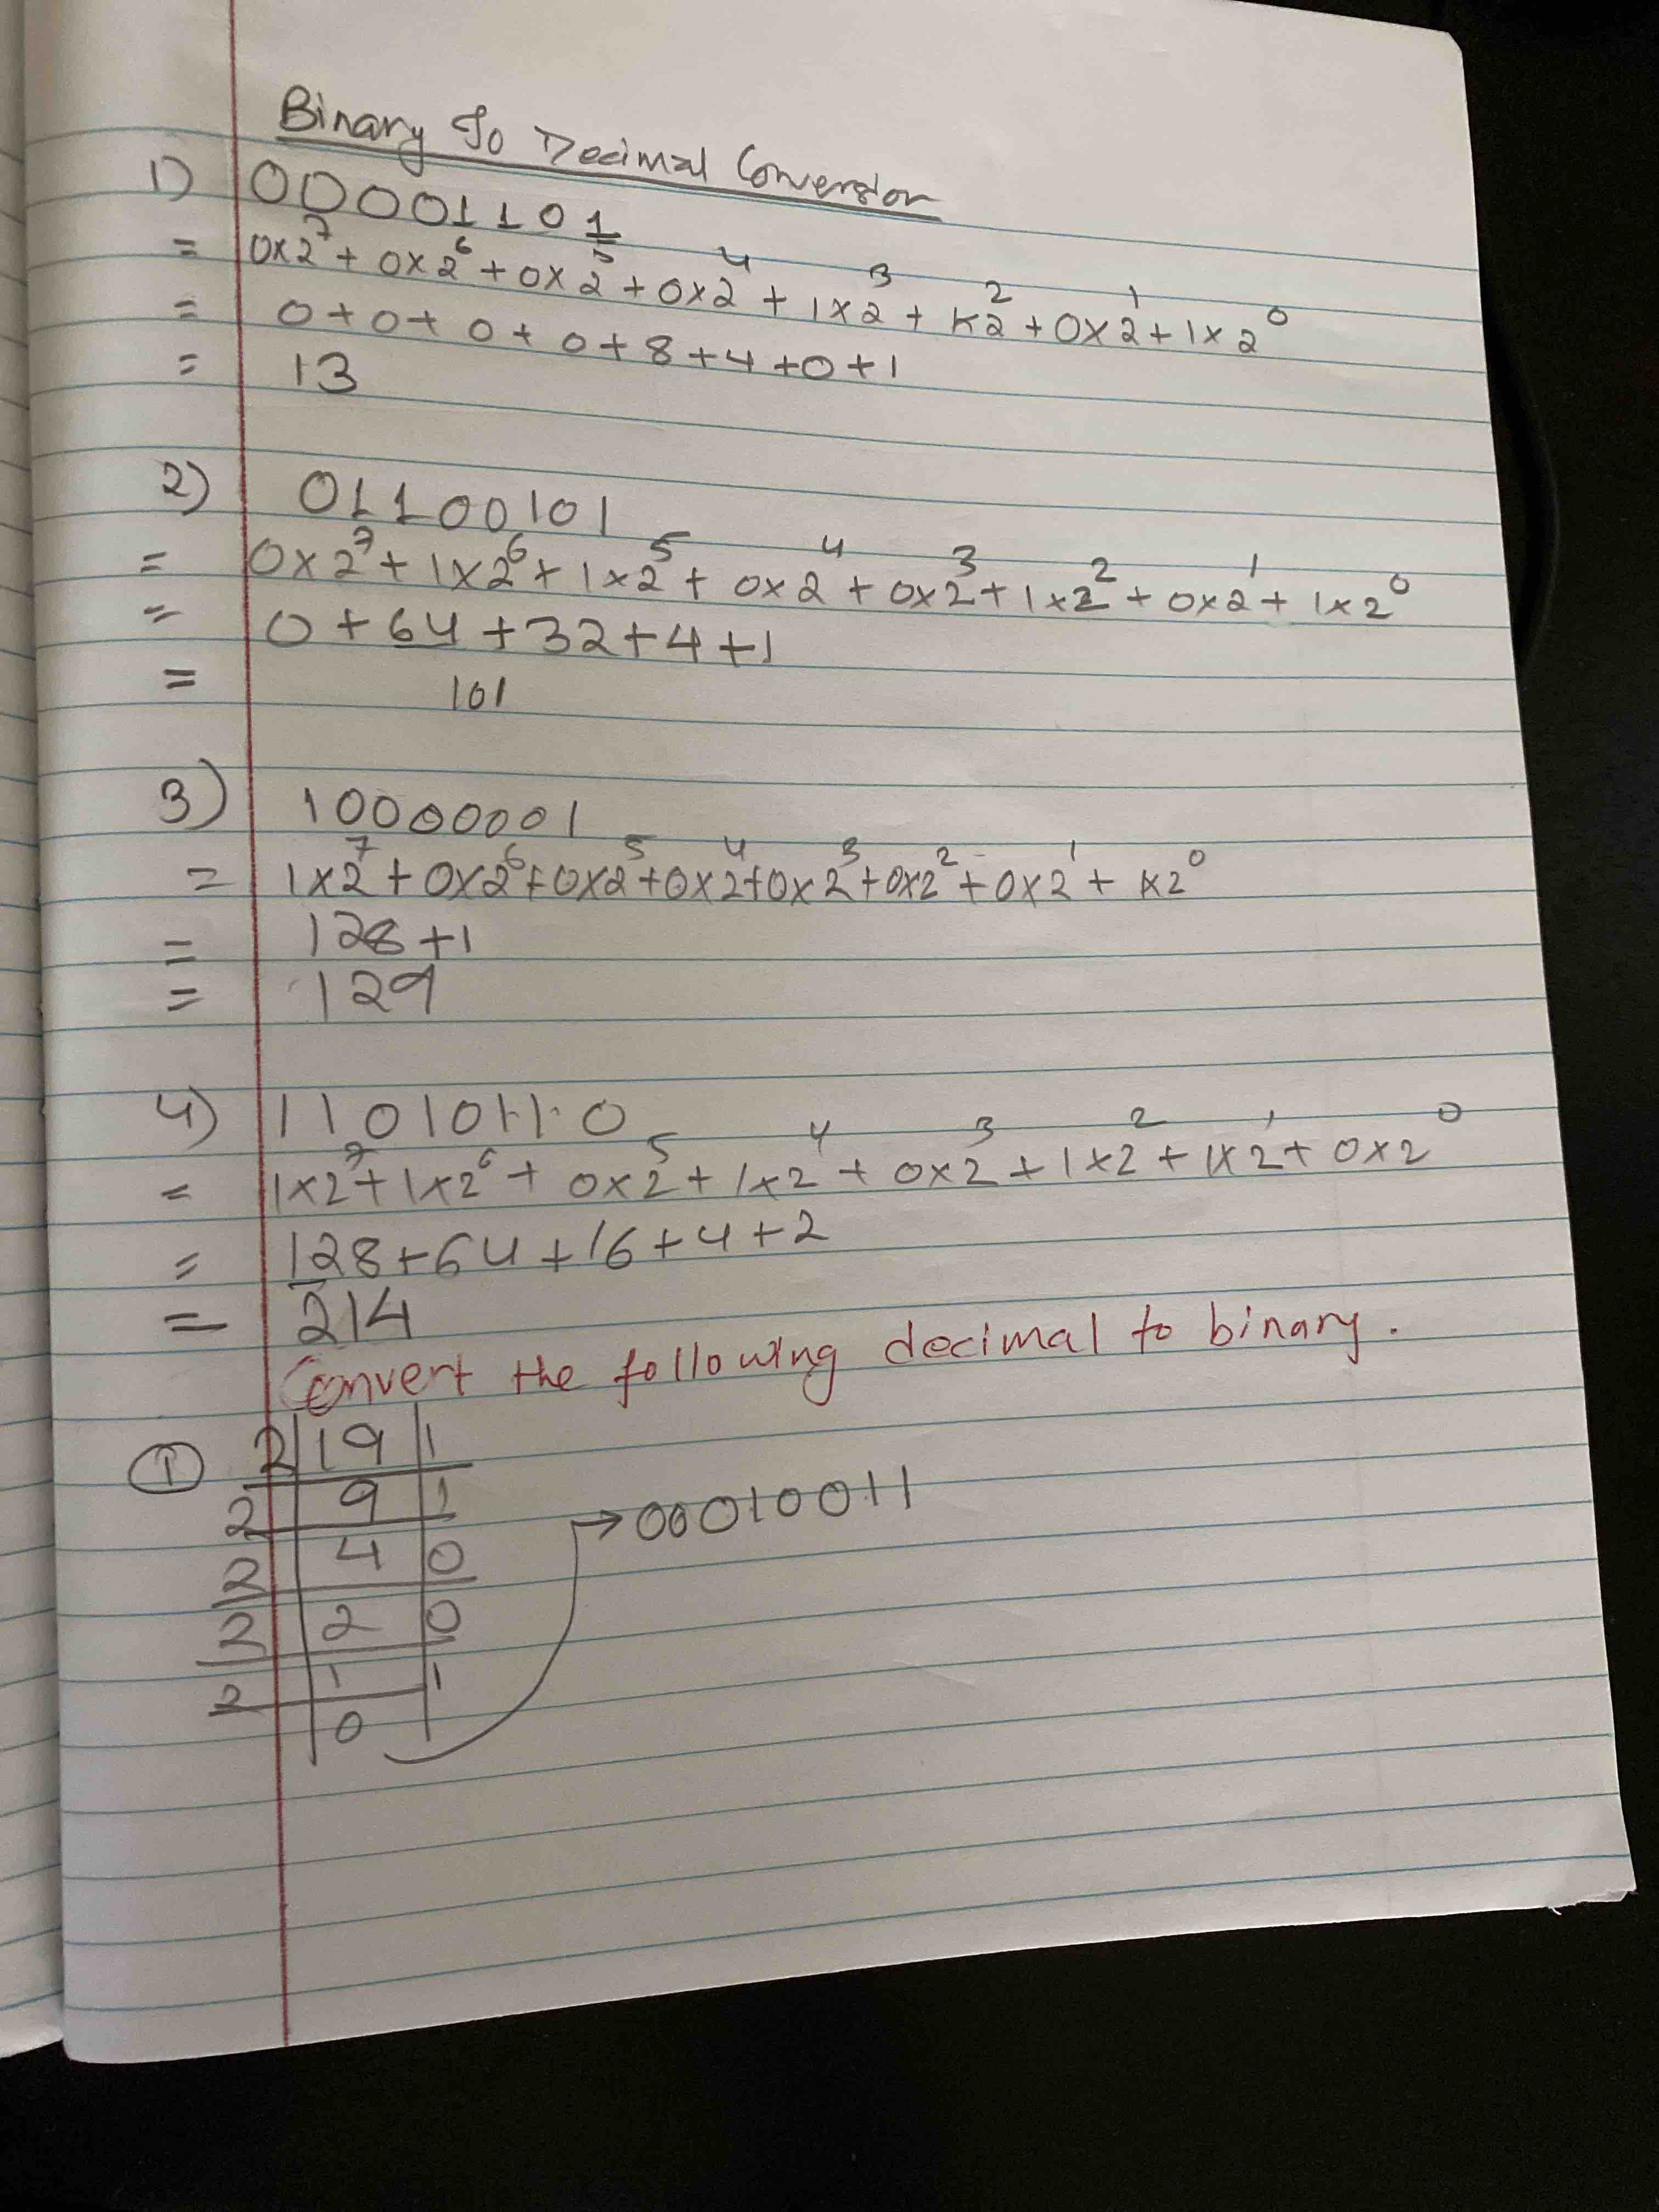 Binary To Decimal Conversion
1) 00001101
= 0×2⁷ + 0×2⁶ + 0×2⁵ + 0×2⁴ + 1×2³ + 1×2² + 0×2¹ + 1×2⁰
= 0+0+0+0+8+4+0+1
= 13
2) 01100101
= 0×2⁷ + 1×2⁶ + 1×2⁵ + 0×2⁴ + 0×2³ + 1×2² + 0×2¹ + 1×2⁰
= 0+64+32+4+1
= 101
3) 10000001
= 1×2⁷ + 0×2⁶ + 0×2⁵ + 0×2⁴ + 0×2³ + 0×2² + 0×2¹ + 1×2⁰
= 128+1
= 129
4) 11010110
= 1×2⁷ + 1×2⁶ + 0×2⁵ + 1×2⁴ + 0×2³ + 1×2² + 1×2¹ + 0×2⁰
= 128+64+16+4+2
= 214
Convert the following decimal to binary.
① 2 19 1
2 9 1 → 00010011
2 4 0
2 2 0
2 1 1
0